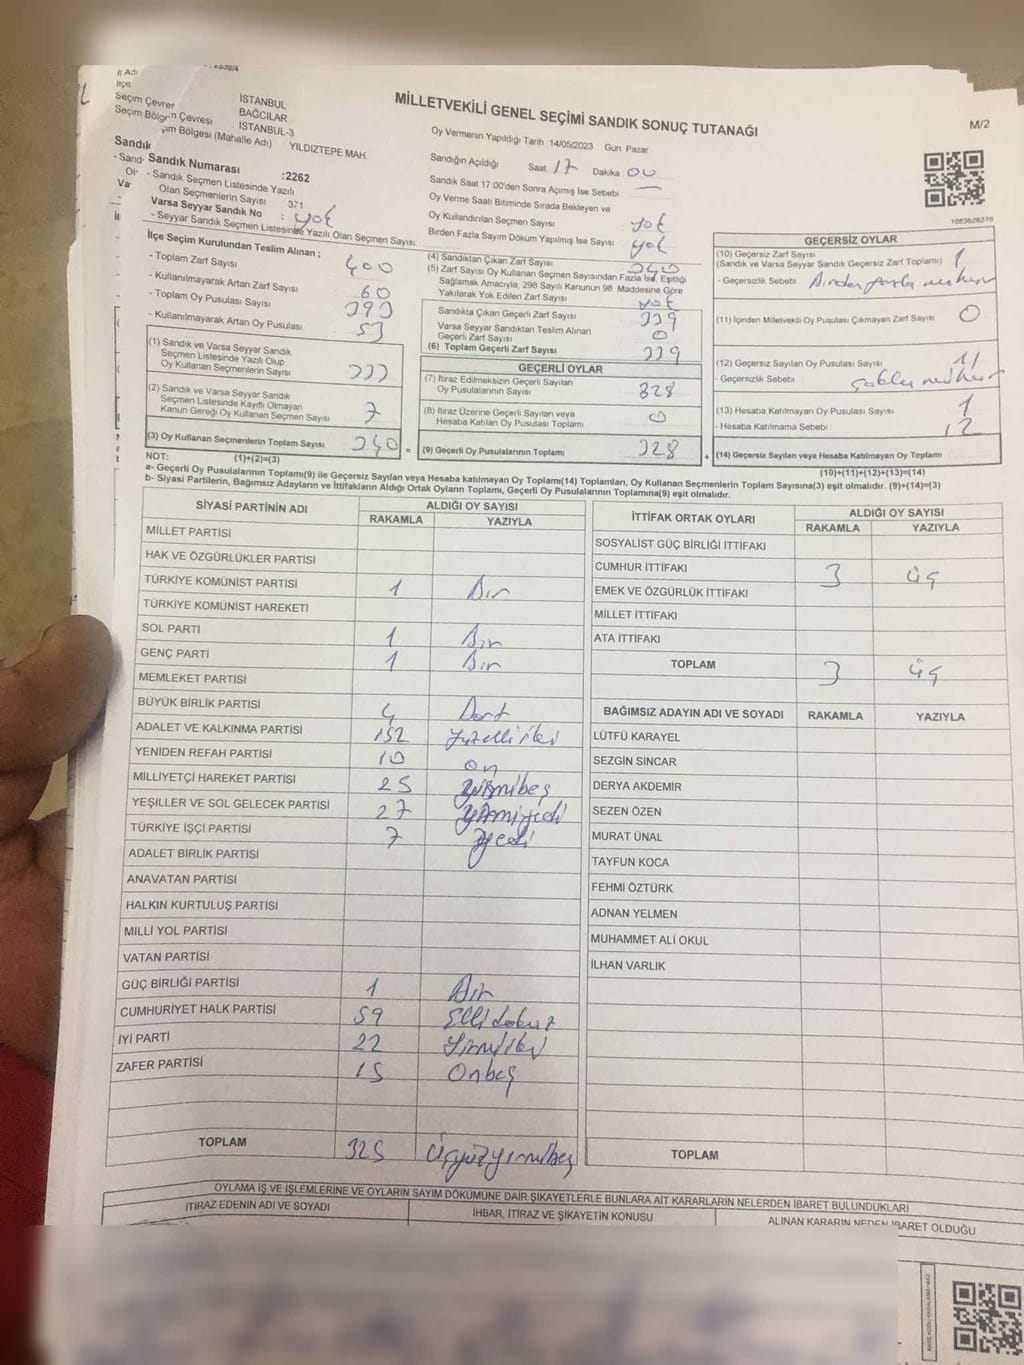 İl Adı
İSTANBUL
İlçe
BAĞCILAR
Seçim Çevresi
İSTANBUL-3
Seçim Bölgesi (Mahalle Adı) YILDIZTEPE MAH.
MİLLETVEKİLİ GENEL SEÇİMİ SANDIK SONUÇ TUTANAĞI
M/2
Oy Vermenin Yapıldığı Tarih 14/05/2023 Gün Pazar
Sandığın Açıldığı Saat 17 Dakika 00
Sandık Saat 17:00'den Sonra Açımış İse Sebebi —
Oy Verme Saati Bitiminde Sırada Bekleyen ve
Oy Kullandırılan Seçmen Sayısı yok
Birden Fazla Sayım Döküm Yapılmış İse Sayısı yok
Sandık Numarası :2262
- Sandık Seçmen Listesinde Yazılı
Olan Seçmenlerin Sayısı 371
Varsa Seyyar Sandık No : yok
- Seyyar Sandık Seçmen Listesinde Yazılı Olan Seçmen Sayısı:
İlçe Seçim Kurulundan Teslim Alınan ;
- Toplam Zarf Sayısı 400
- Kullanılmayarak Artan Zarf Sayısı 60
- Toplam Oy Pusulası Sayısı 393
- Kullanılmayarak Artan Oy Pusulası 53
(1) Sandık ve Varsa Seyyar Sandık
Seçmen Listesinde Yazılı Olup
Oy Kullanan Seçmenlerin Sayısı 333
(2) Sandık ve Varsa Seyyar Sandık
Seçmen Listesinde Kayıtlı Olmayan
Kanun Gereği Oy Kullanan Seçmen Sayısı 7
(3) Oy Kullanan Seçmenlerin Toplam Sayısı 340
(1)+(2)=(3)
(4) Sandıktan Çıkan Zarf Sayısı 340
(5) Zarf Sayısı Oy Kullanan Seçmen Sayısından Fazla İse, Eşitliği
Sağlamak Amacıyla, 298 Sayılı Kanunun 98 Maddesine Göre
Yakılarak Yok Edilen Zarf Sayısı yok
Sandıkta Çıkan Geçerli Zarf Sayısı 339
Varsa Seyyar Sandıktan Teslim Alınan
Geçerli Zarf Sayısı 0
(6) Toplam Geçerli Zarf Sayısı 339
GEÇERLİ OYLAR
(7) İtiraz Edilmeksizin Geçerli Sayılan
Oy Pusulalarının Sayısı 328
(8) İtiraz Üzerine Geçerli Sayılan veya
Hesaba Katılan Oy Pusulası Toplamı 0
= (9) Geçerli Oy Pusulalarının Toplamı 328 +
1083626376
GEÇERSİZ OYLAR
(10) Geçersiz Zarf Sayısı 1
(Sandık ve Varsa Seyyar Sandık Geçersiz Zarf Toplamı)
- Geçersizlik Sebebi Birden fazla
(11) İçinden Milletvekili Oy Pusulası Çıkmayan Zarf Sayısı 0
(12) Geçersiz Sayılan Oy Pusulası Sayısı 11
- Geçersizlik Sebebi
(13) Hesaba Katılmayan Oy Pusulası Sayısı 1
- Hesaba Katılmama Sebebi
12
(14) Geçersiz Sayılan veya Hesaba Katılmayan Oy Toplamı
(10)+(11)+(12)+(13)=(14)
NOT:
a- Geçerli Oy Pusulalarının Toplamı(9) ile Geçersiz Sayılan veya Hesaba katılmayan Oy Toplamı(14) Toplamları, Oy Kullanan Seçmenlerin Toplam Sayısına(3) eşit olmalıdır. (9)+(14)=(3)
b- Siyasi Partilerin, Bağımsız Adayların ve İttifakların Aldığı Ortak Oyların Toplamı, Geçerli Oy Pusulalarının Toplamına(9) eşit olmalıdır.
SİYASİ PARTİNİN ADI
ALDIĞI OY SAYISI
RAKAMLA YAZIYLA
MİLLET PARTİSİ
HAK VE ÖZGÜRLÜKLER PARTİSİ
TÜRKİYE KOMÜNİST PARTİSİ 1 Bir
TÜRKİYE KOMÜNİST HAREKETİ
SOL PARTİ 1 Bir
GENÇ PARTİ 1 Bir
MEMLEKET PARTİSİ
BÜYÜK BİRLİK PARTİSİ 4 Dört
ADALET VE KALKINMA PARTİSİ 152 Yüzelliiki
YENİDEN REFAH PARTİSİ 10 on
MİLLİYETÇİ HAREKET PARTİSİ 25 yirmibeş
YEŞİLLER VE SOL GELECEK PARTİSİ 27 yirmiyedi
TÜRKİYE İŞÇİ PARTİSİ 7 yedi
ADALET BİRLİK PARTİSİ
ANAVATAN PARTİSİ
HALKIN KURTULUŞ PARTİSİ
MİLLİ YOL PARTİSİ
VATAN PARTİSİ
GÜÇ BİRLİĞİ PARTİSİ 1 Bir
CUMHURİYET HALK PARTİSİ 59 Ellidokuz
İYİ PARTİ 22 Yirmiiki
ZAFER PARTİSİ 15 Onbeş
TOPLAM 325 Üçyüzyirmibeş
İTTİFAK ORTAK OYLARI
ALDIĞI OY SAYISI
RAKAMLA YAZIYLA
SOSYALİST GÜÇ BİRLİĞİ İTTİFAKI
CUMHUR İTTİFAKI 3 üç
EMEK VE ÖZGÜRLÜK İTTİFAKI
MİLLET İTTİFAKI
ATA İTTİFAKI
TOPLAM 3 üç
BAĞIMSIZ ADAYIN ADI VE SOYADI RAKAMLA YAZIYLA
LÜTFÜ KARAYEL
SEZGİN SİNCAR
DERYA AKDEMİR
SEZEN ÖZEN
MURAT ÜNAL
TAYFUN KOCA
FEHMİ ÖZTÜRK
ADNAN YELMEN
MUHAMMET ALİ OKUL
İLHAN VARLIK
TOPLAM
OYLAMA İŞ VE İŞLEMLERİNE VE OYLARIN SAYIM DÖKÜMÜNE DAİR ŞİKAYETLERLE BUNLARA AİT KARARLARIN NELERDEN İBARET BULUNDUKLARI
İTİRAZ EDENİN ADI VE SOYADI
İHBAR, İTİRAZ VE ŞİKAYETİN KONUSU
ALINAN KARARIN NEDEN İBARET OLDUĞU